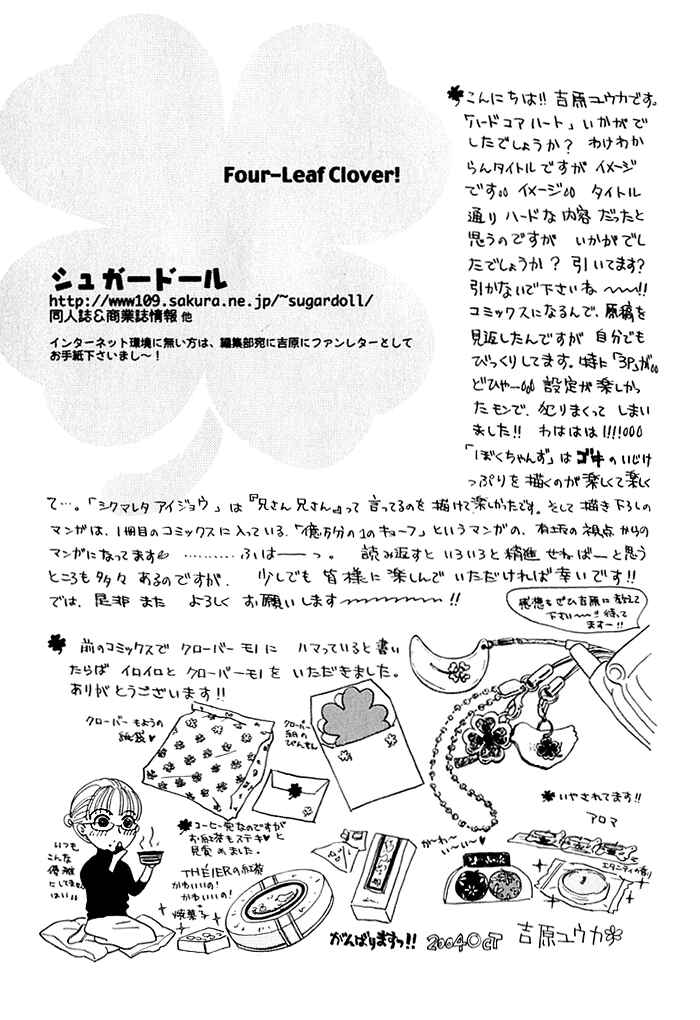 Four-Leaf Clover!
シュガードール
http://www109.sakura.ne.jp/~sugardoll/
同人誌&商業誌情報 他
インターネット環境に無い方は、編集部宛に吉原にファンレターとして
お手紙下さいまし〜！
こんにちは!! 吉原ユウカです。
「ハードコアハート」いかがで
したでしょうか？ わけわか
らんタイトルですが イメージ
です。。イメージ。。 タイトル
通り ハードな内容 だったと
思うのですが いかがでし
たでしょうか？ 引いてます?
引かないで下さいね 〜〜!!
コミックスになるんで、原稿を
見返したんですが 自分でも
びっくりしてます。特に「3P」が。。
どひゃー。。。 設定が楽しかっ
たモンで、犯りまくって しまい
ました!! わははは!!!!。。。
「ぼくちゃんず」は のいじけ
っぷりを 描くのが 楽しくて楽しく
て…。「シクマレタ アイジョウ」は『兄さん兄さん』って 言ってるのを 描けて楽しかったです。そして 描き下ろしの
マンガは、1冊目のコミックスに入っている、「億万分の1のキューフ」というマンガの、 の視点からの
マンガになってます ………… ふぃはーーっ。 読み返すと いろいろと 精進せねばーと思う
ところも 多々 あるのですが、 少しでも 皆様に楽しんで いただければ 幸いです!!
では、是非 また よろしく お願いします〜〜〜〜!!
感想もぜひ吉原に教えて
下さい〜〜!! 待って
ますー!!
前のコミックスで クローバーモノに ハマっていると書い
たらば イロイロと クローバーモノを いただきました。
ありがとうございます!!
クローバーもようの
紙袋♥
クローバー
柄の
びんせん
いつも
こんな
優雅
にしてませ
んけい!!
コーヒー党なのですが
お紅茶もステキ♥ と
見覚めました。
THÉIERの紅茶
かわいいの!
かわいいの!
焼菓子
がわ〜
い〜い〜♥
いやされてます!!
アロマ
エタニティの香り
がんばりますっ!! 2004 Oct 吉原ユウカ